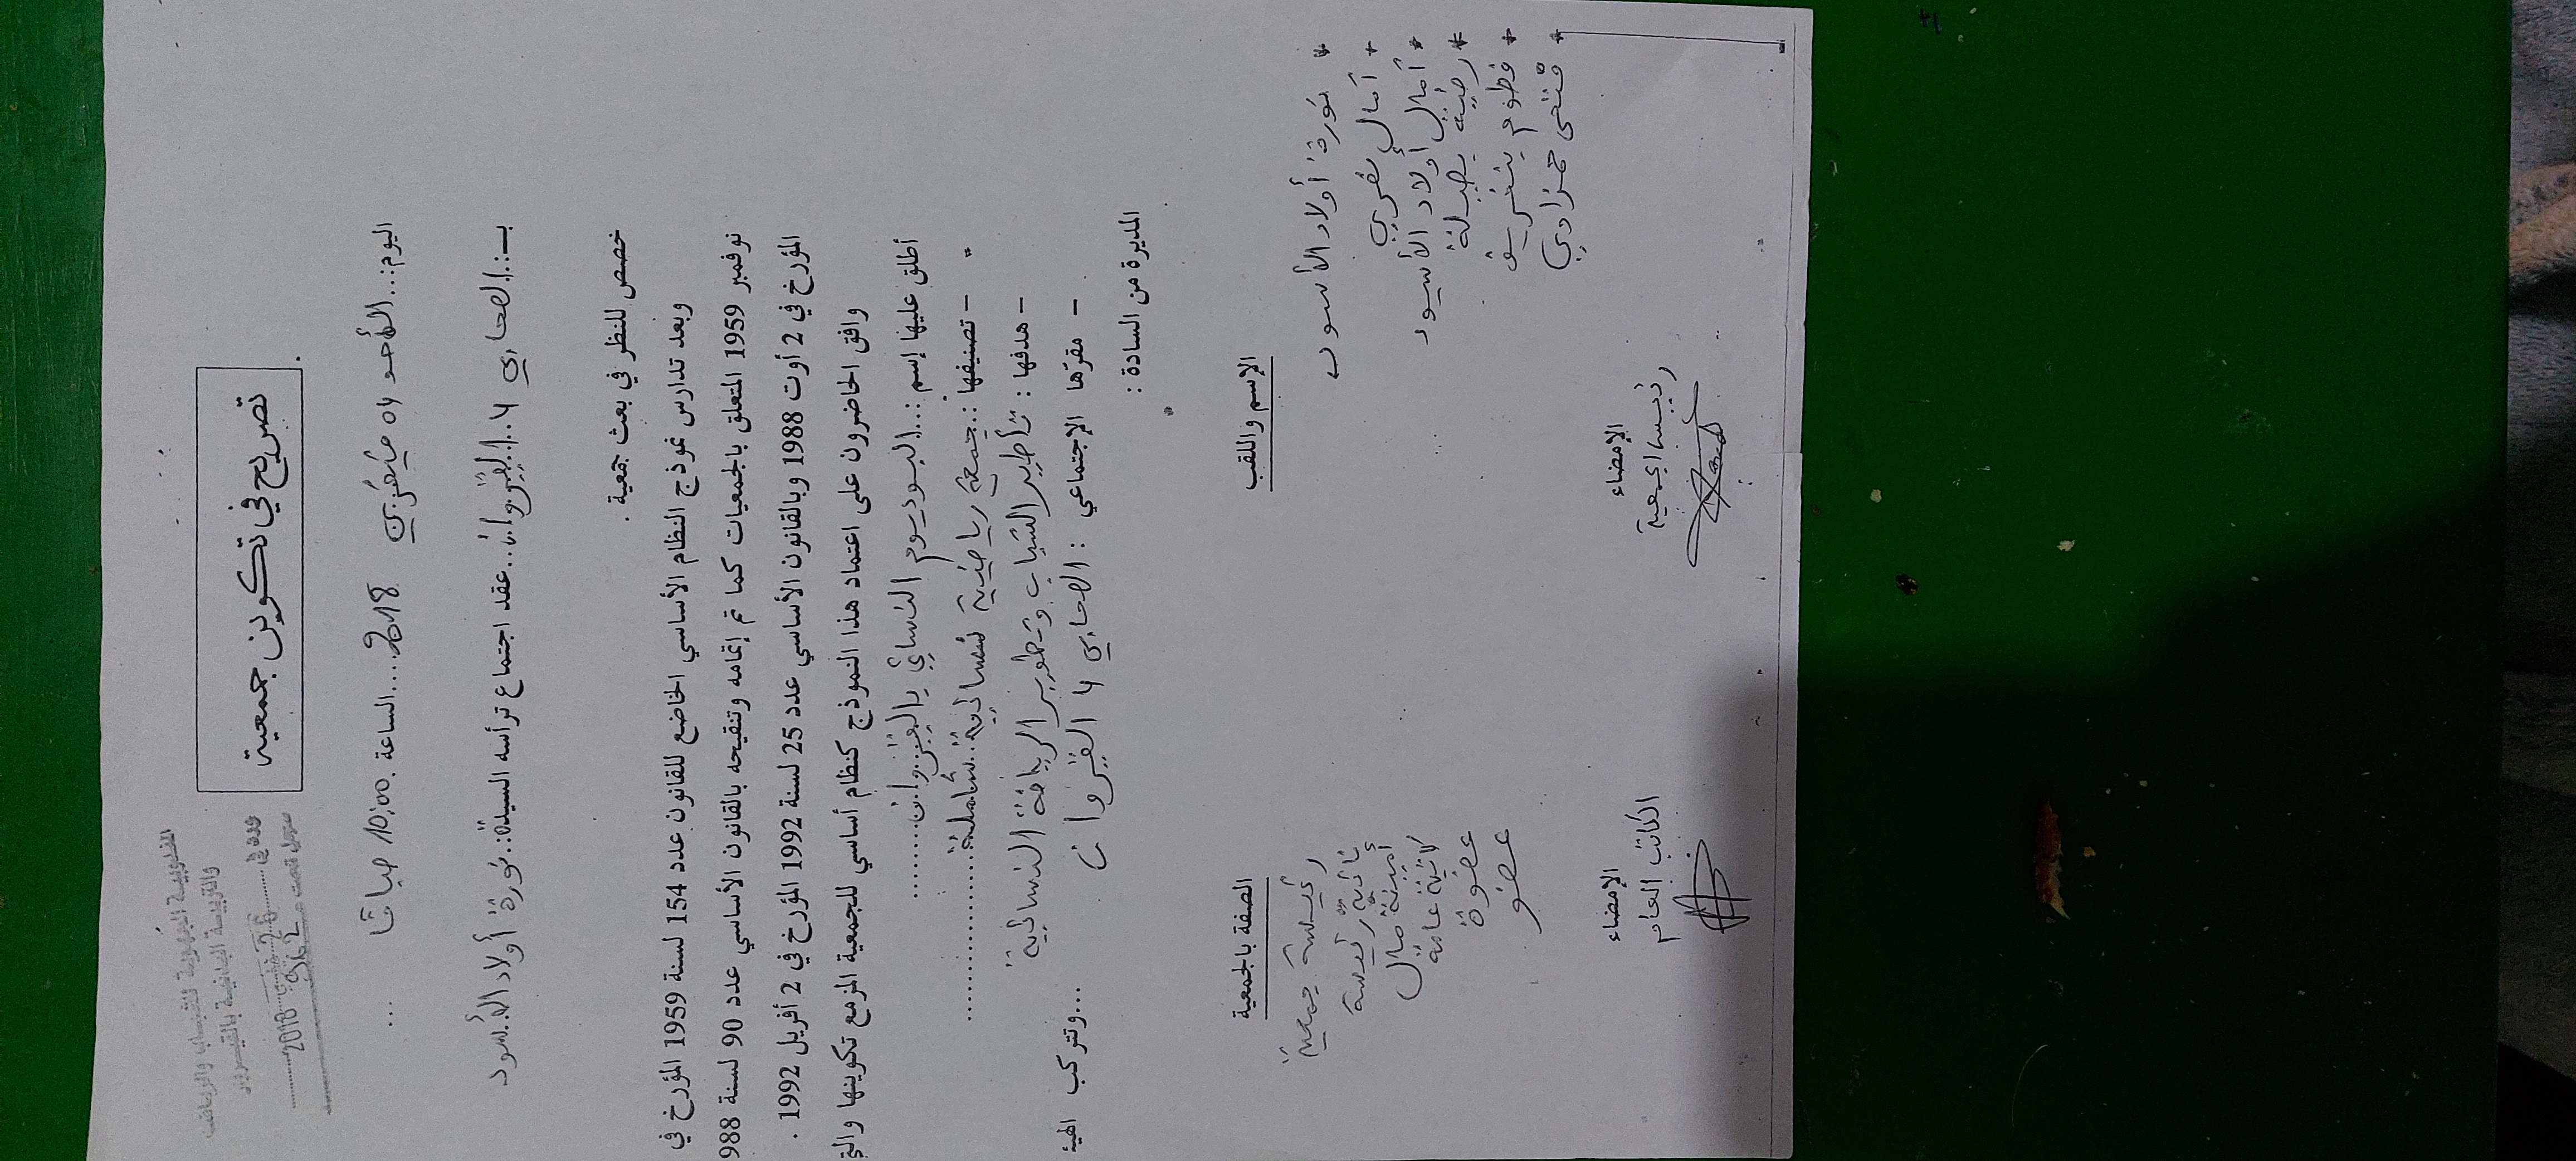 المندوبية الجهوية للشباب والرياضة
والتربية البدنية بالقيروان
2018
تصريح في تكوين جمعية
اليوم:...الأحد 04 فيفري 2018....الساعة 10:00 صباحا
بـ:.الصحابي 4..القيروان..عقد اجتماع ترأسه السيدة:.نورة أولاد الأسود
خصص للنظر في بعث جمعية .
وبعد تدارس نموذج النظام الأساسي الخاضع للقانون عدد 154 لسنة 1959 المؤرخ في
نوفمبر 1959 المتعلق بالجمعيات كما تم إتمامه وتنقيحه بالقانون الأساسي عدد 90 لسنة 988
المؤرخ في 2 أوت 1988 وبالقانون الأساسي عدد 25 لسنة 1992 المؤرخ في 2 أفريل 1992 .
وافق الحاضرون على اعتماد هذا النموذج كنظام أساسي للجمعية المزمع تكوينها والتي
أطلق عليها إسم :...البوديوم النسائي بالقيروان.........
- تصنيفها :.جمعية رياضية نسائية..شاملة................
- هدفها : تأطير الشباب وتطوير الرياضة النسائية
- مقرّها الإجتماعي : الصحابي 4 القيروان ...وتتركب الهيئ
المديرة من السادة :
الإسم واللقب الصفة بالجمعية
* نورة أولاد الأسود رئيسة جمعية
* آمال نصري نائبة رئيسة
* آمال أولاد الأسود أمينة مال
* رضية كاتبة عامة
* فطوم عضوة
* عضو
الإمضاء الإمضاء
رئيسة الجمعية الكاتب العام